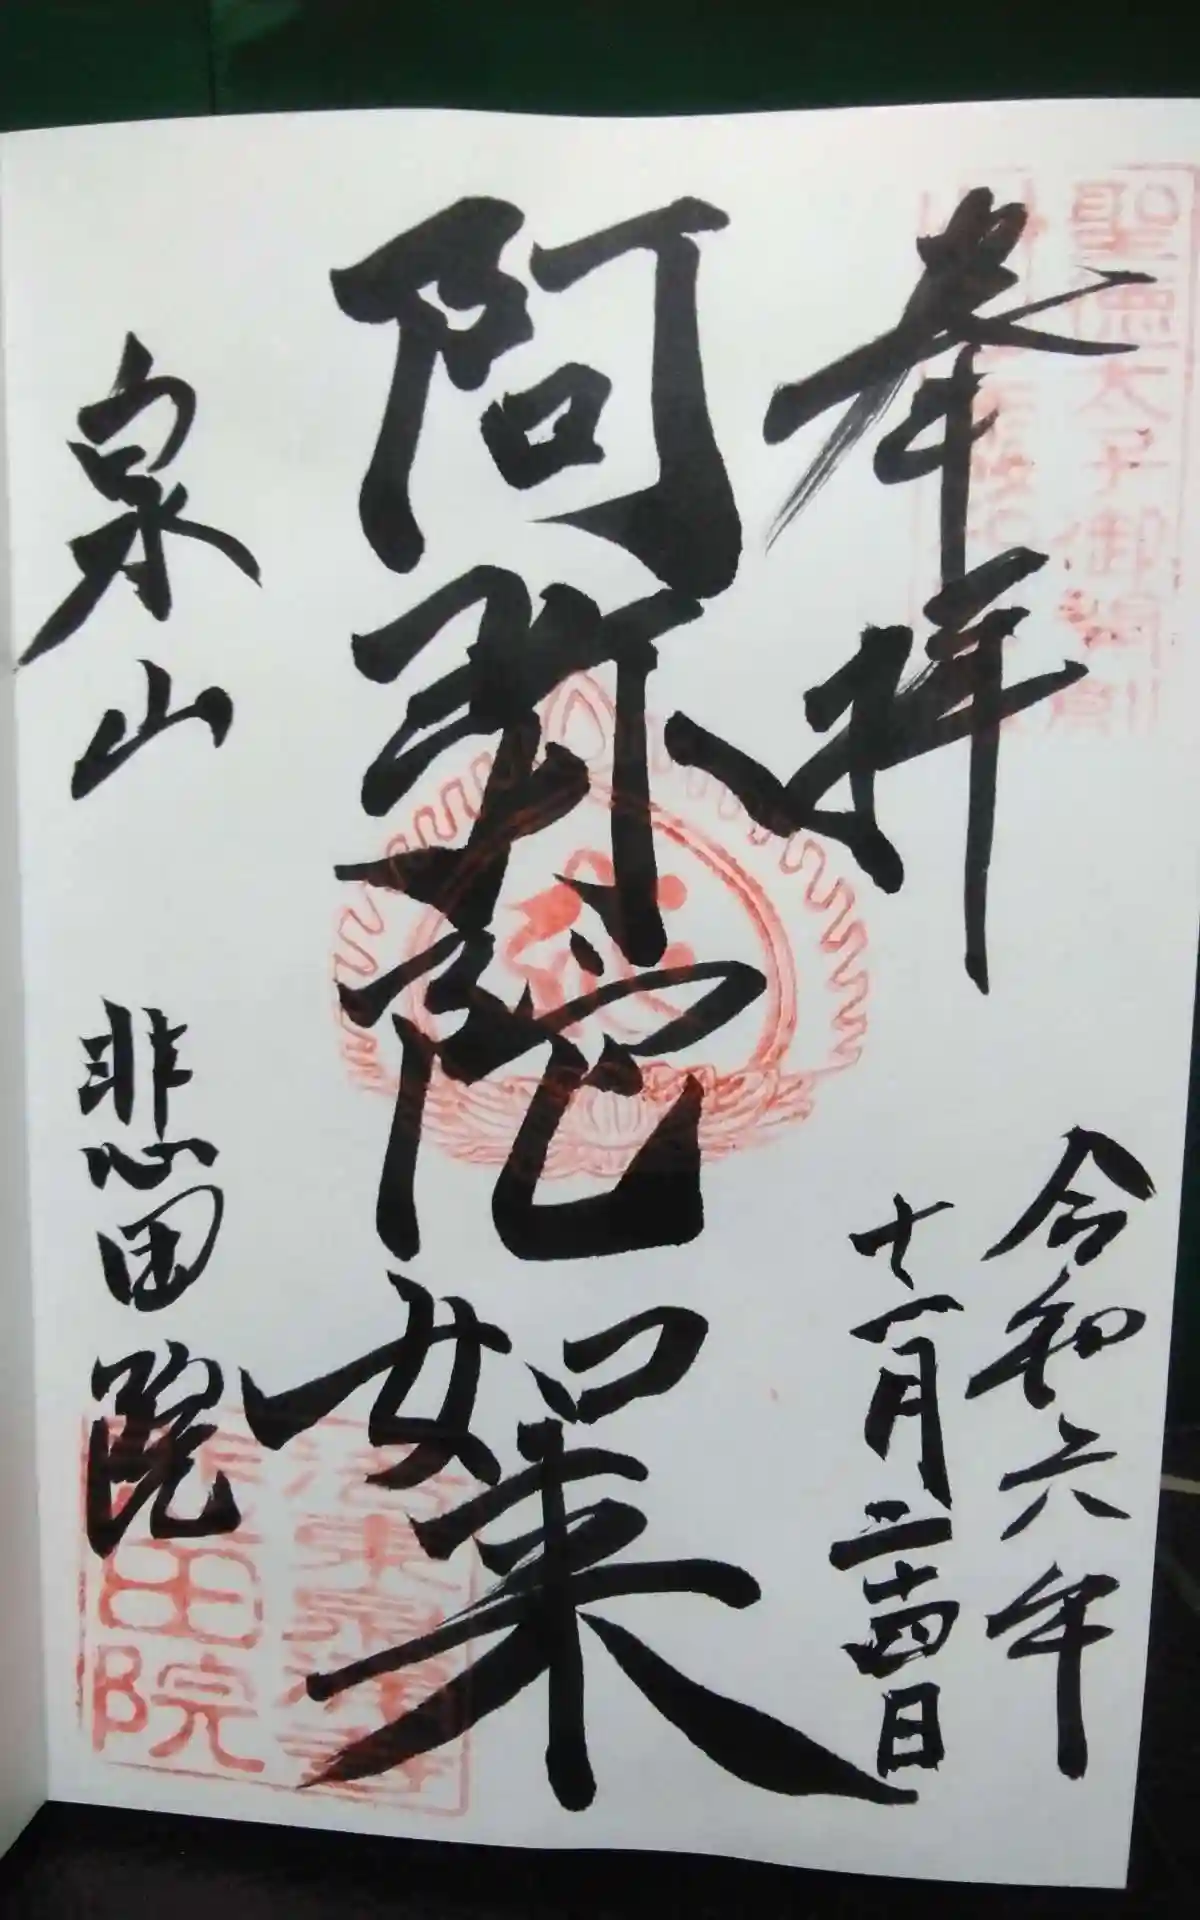 聖徳太子御開創
奉拝
令和六年
十一月二十四日
阿弥陀如来
泉山
悲田院
悲田院